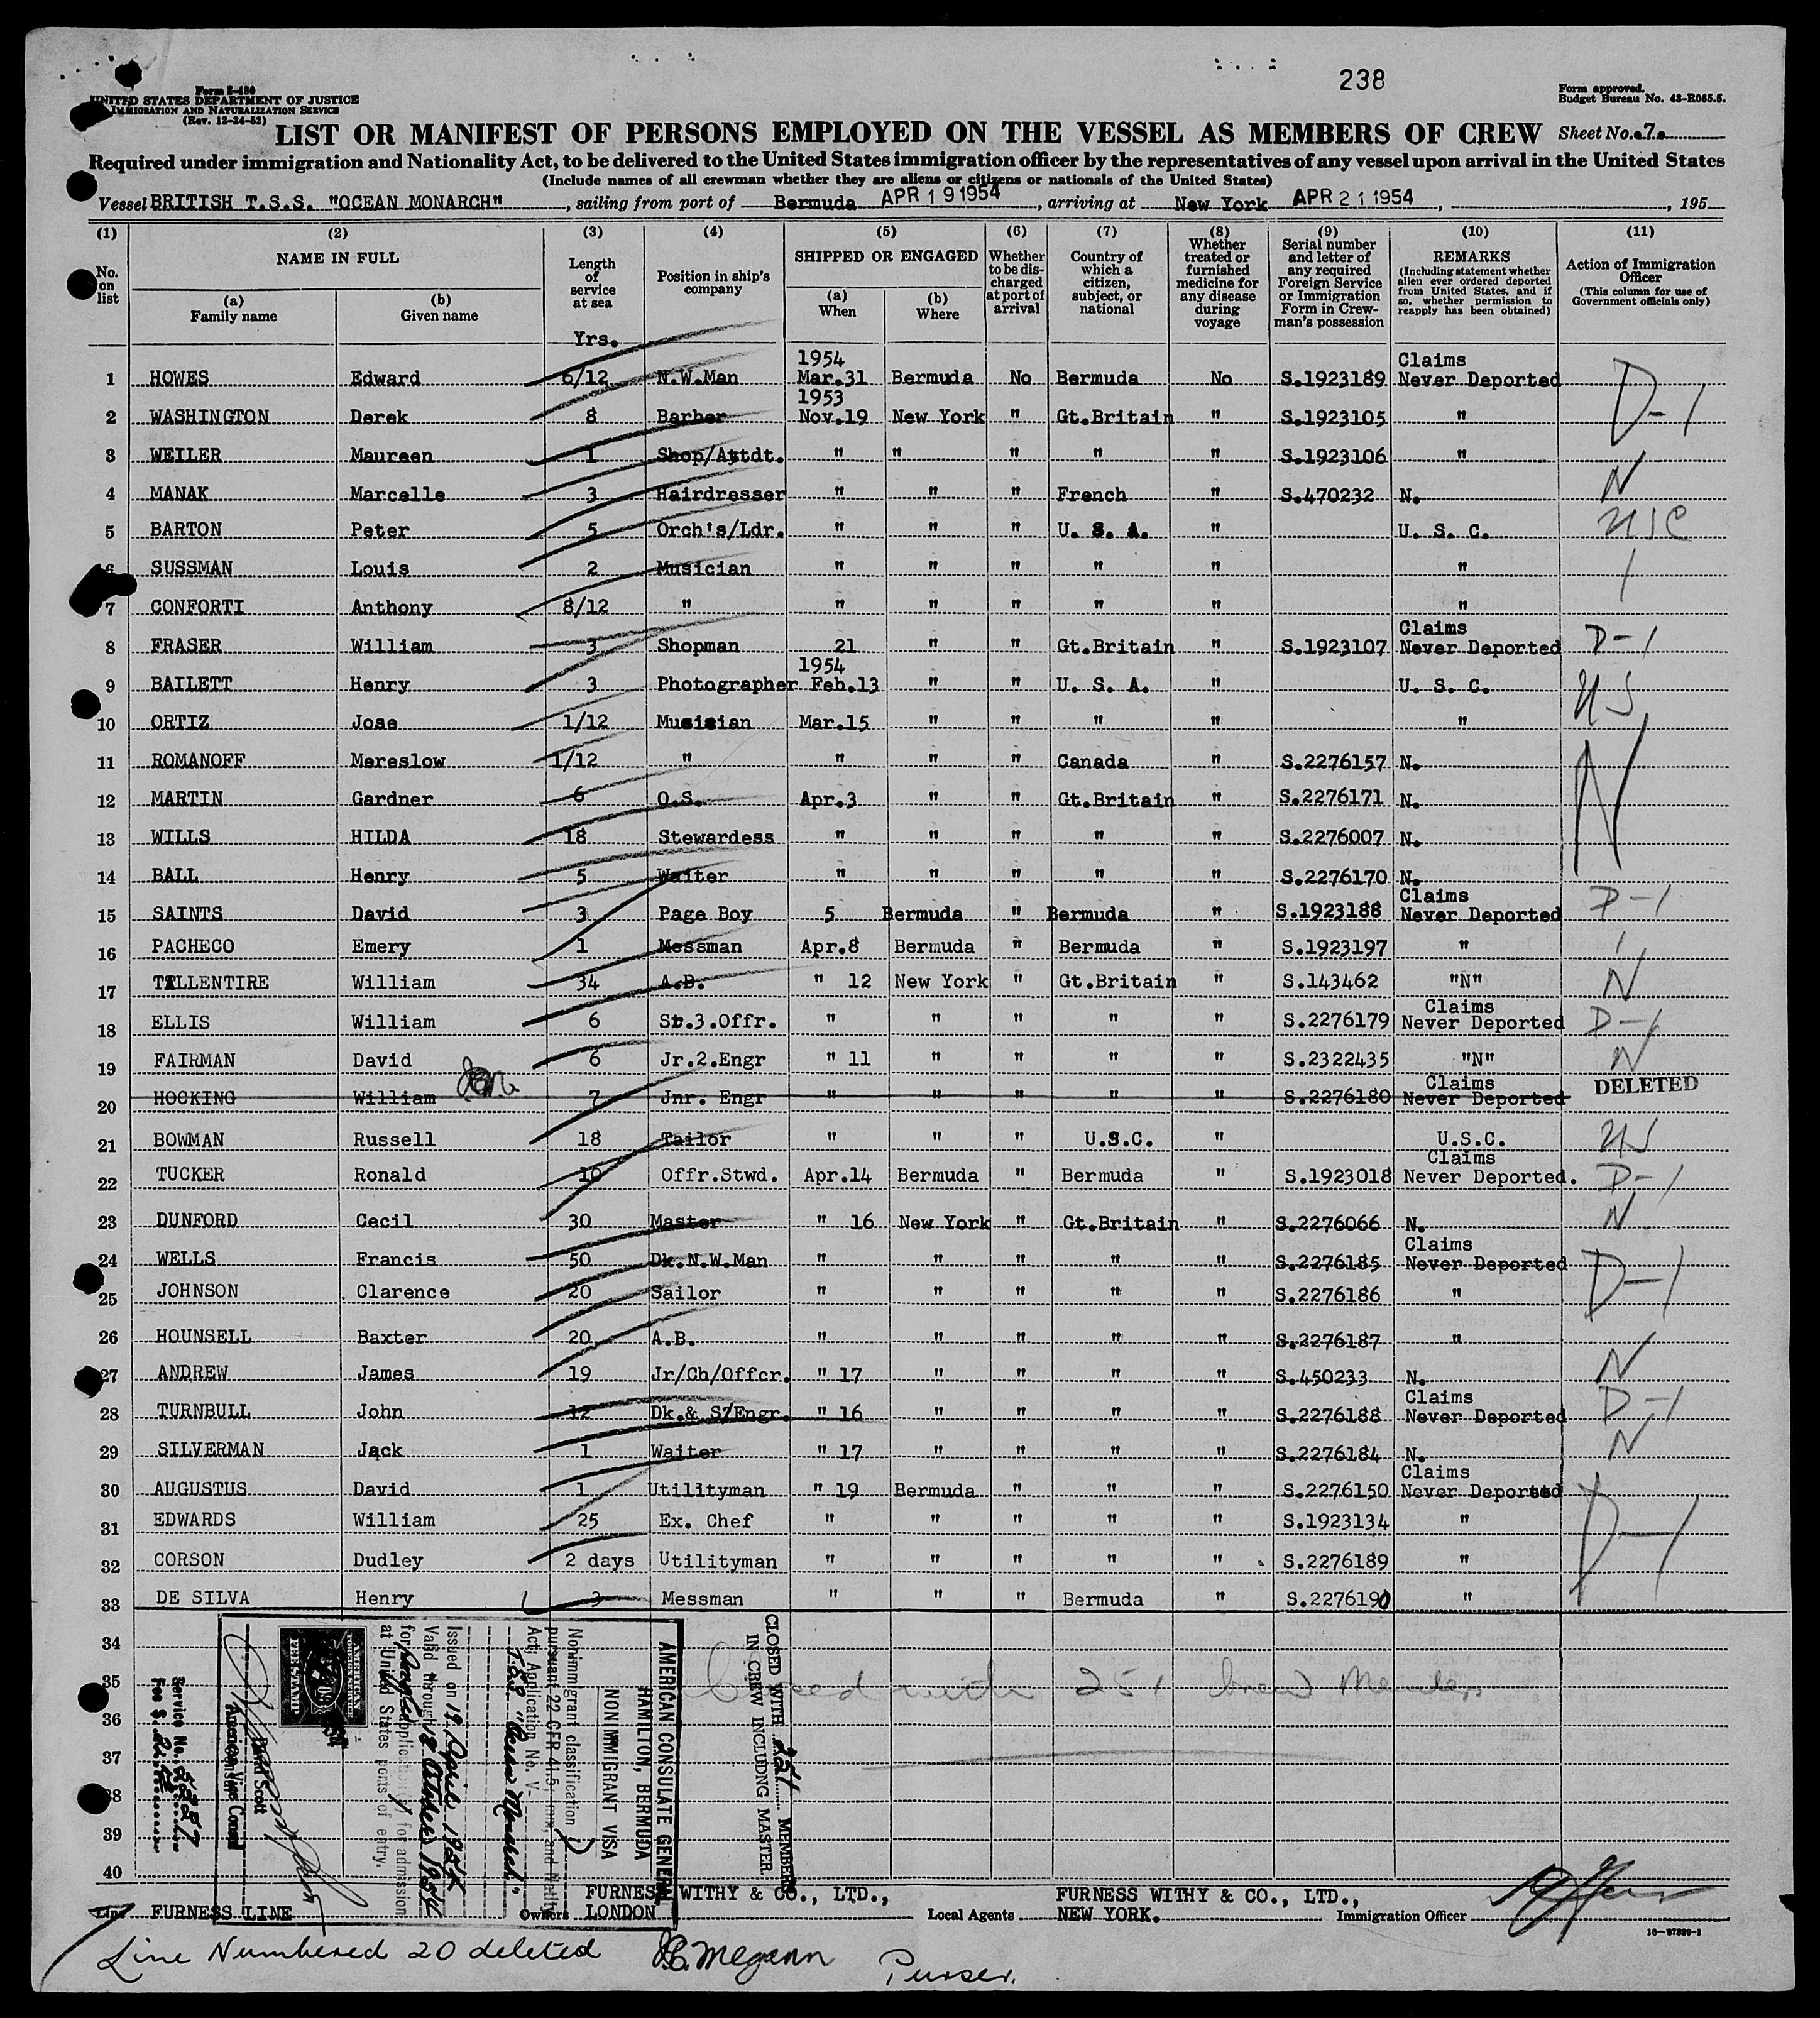 238
Form I-480
UNITED STATES DEPARTMENT OF JUSTICE
IMMIGRATION AND NATURALIZATION SERVICE
(Rev. 12-24-52)
Form approved.
Budget Bureau No. 43-R065.5.
LIST OR MANIFEST OF PERSONS EMPLOYED ON THE VESSEL AS MEMBERS OF CREW Sheet No. 7.
Required under immigration and Nationality Act, to be delivered to the United States immigration officer by the representatives of any vessel upon arrival in the United States
(Include names of all crewman whether they are aliens or citizens or nationals of the United States)
Vessel BRITISH T.S.S. "OCEAN MONARCH", sailing from port of Bermuda APR 19 1954, arriving at New York APR 21 1954, , 195
(1) (2) (3) (4) (5) (6) (7) (8) (9) (10) (11)
No. on list
NAME IN FULL
(a) Family name
(b) Given name
Length of service at sea
Yrs.
Position in ship's company
SHIPPED OR ENGAGED
(a) When
(b) Where
Whether to be discharged at port of arrival
Country of which a citizen, subject, or national
Whether treated or furnished medicine for any disease during voyage
Serial number and letter of any required Foreign Service or Immigration Form in Crewman's possession
REMARKS
(Including statement whether alien ever ordered deported from United States, and if so, whether permission to reapply has been obtained)
Action of Immigration Officer
(This column for use of Government officials only)
1954 Claims
1 HOWES Edward 6/12 N.W.Man Mar.31 Bermuda No Bermuda No S.1923189 Never Deported D-1
1953
2 WASHINGTON Derek 8 Barber Nov.19 New York " Gt.Britain " S.1923105 "
3 WEILER Maureen 1 Shop/Attdt. " " " " " S.1923106 "
4 MANAK Marcelle 3 Hairdresser " " " French " S.470232 N. N
5 BARTON Peter 5 Orch's/Ldr. " " " U. S. A. " U. S. C. USC
6 SUSSMAN Louis 2 Musician " " " " " " /
7 CONFORTI Anthony 8/12 " " " " " " "
Claims
8 FRASER William 3 Shopman 21 " " Gt.Britain " S.1923107 Never Deported D-1
1954
9 BAILETT Henry 3 Photographer Feb.13 " " U. S. A. " U. S. C. US
10 ORTIZ Jose 1/12 Musician Mar.15 " " " " "
11 ROMANOFF Mereslow 1/12 " " " " Canada " S.2276157 N. N
12 MARTIN Gardner 6 O.S. Apr.3 " " Gt.Britain " S.2276171 N.
13 WILLS HILDA 18 Stewardess " " " " " S.2276007 N.
14 BALL Henry 5 Waiter " " " " " S.2276170 N.
Claims
15 SAINTS David 3 Page Boy 5 Bermuda " Bermuda " S.1923188 Never Deported D-1
16 PACHECO Emery 1 Messman Apr.8 Bermuda " Bermuda " S.1923197 " /
17 TALLENTIRE William 34 A.B. " 12 New York " Gt.Britain " S.143462 "N" N
Claims
18 ELLIS William 6 Sr.3.Offr. " " " " " S.2276179 Never Deported D-1
19 FAIRMAN David 6 Jr.2.Engr " 11 " " " " S.2322435 "N" N
Claims
20 HOCKING William 7 Jnr. Engr " " " " " S.2276180 Never Deported DELETED
21 BOWMAN Russell 18 Tailor " " " U.S.C. " U.S.C. US
Claims
22 TUCKER Ronald 10 Offr.Stwd. Apr.14 Bermuda " Bermuda " S.1923018 Never Deported. D-1
23 DUNFORD Cecil 30 Master " 16 New York " Gt.Britain " S.2276066 N. N
Claims
24 WELLS Francis 50 Dk.N.W.Man " " " " " S.2276185 Never Deported D-1
25 JOHNSON Clarence 20 Sailor " " " " " S.2276186 "
26 HOUNSELL Baxter 20 A.B. " " " " " S.2276187 "
27 ANDREW James 19 Jr/Ch/Offcr. " 17 " " " " S.450233 N. N
Claims
28 TURNBULL John 12 Dk.& S/Engr. " 16 " " " " S.2276188 Never Deported D-1
29 SILVERMAN Jack 1 Waiter " 17 " " " " S.2276184 N. N
Claims
30 AUGUSTUS David 1 Utilityman " 19 Bermuda " " " S.2276150 Never Deported D-1
31 EDWARDS William 25 Ex. Chef " " " " " S.1923134 "
32 CORSON Dudley 2 days Utilityman " " " " " S.2276189 "
33 DE SILVA Henry 3 Messman " " " Bermuda " S.2276190 "
34
35 Closed with 251 Crew Members
36
37
38
39
40
CLOSED WITH 251 MEMBERS
IN CREW INCLUDNG MASTER.
AMERICAN CONSULATE GENERAL
HAMILTON, BERMUDA
NONIMMIGRANT VISA
Nonimmigrant classification D
pursuant 22 CFR 41.5, Imm. and Natlty
Act; Application No. V-
TSS "Ocean Monarch"
Issued on 19 April 1954
Valid through 18 October 1954
for application for admission
at United States ports of entry.
AMERICAN FOREIGN SERVICE
FEE STAMP
David Scott
American Vice Consul
Service No. 5287
Fee $
Line FURNESS LINE Owners FURNESS WITHY & CO., LTD., LONDON Local Agents FURNESS WITHY & CO., LTD., NEW YORK. Immigration Officer
16-67829-1
Line Numbered 20 deleted J.C. Megann Purser.